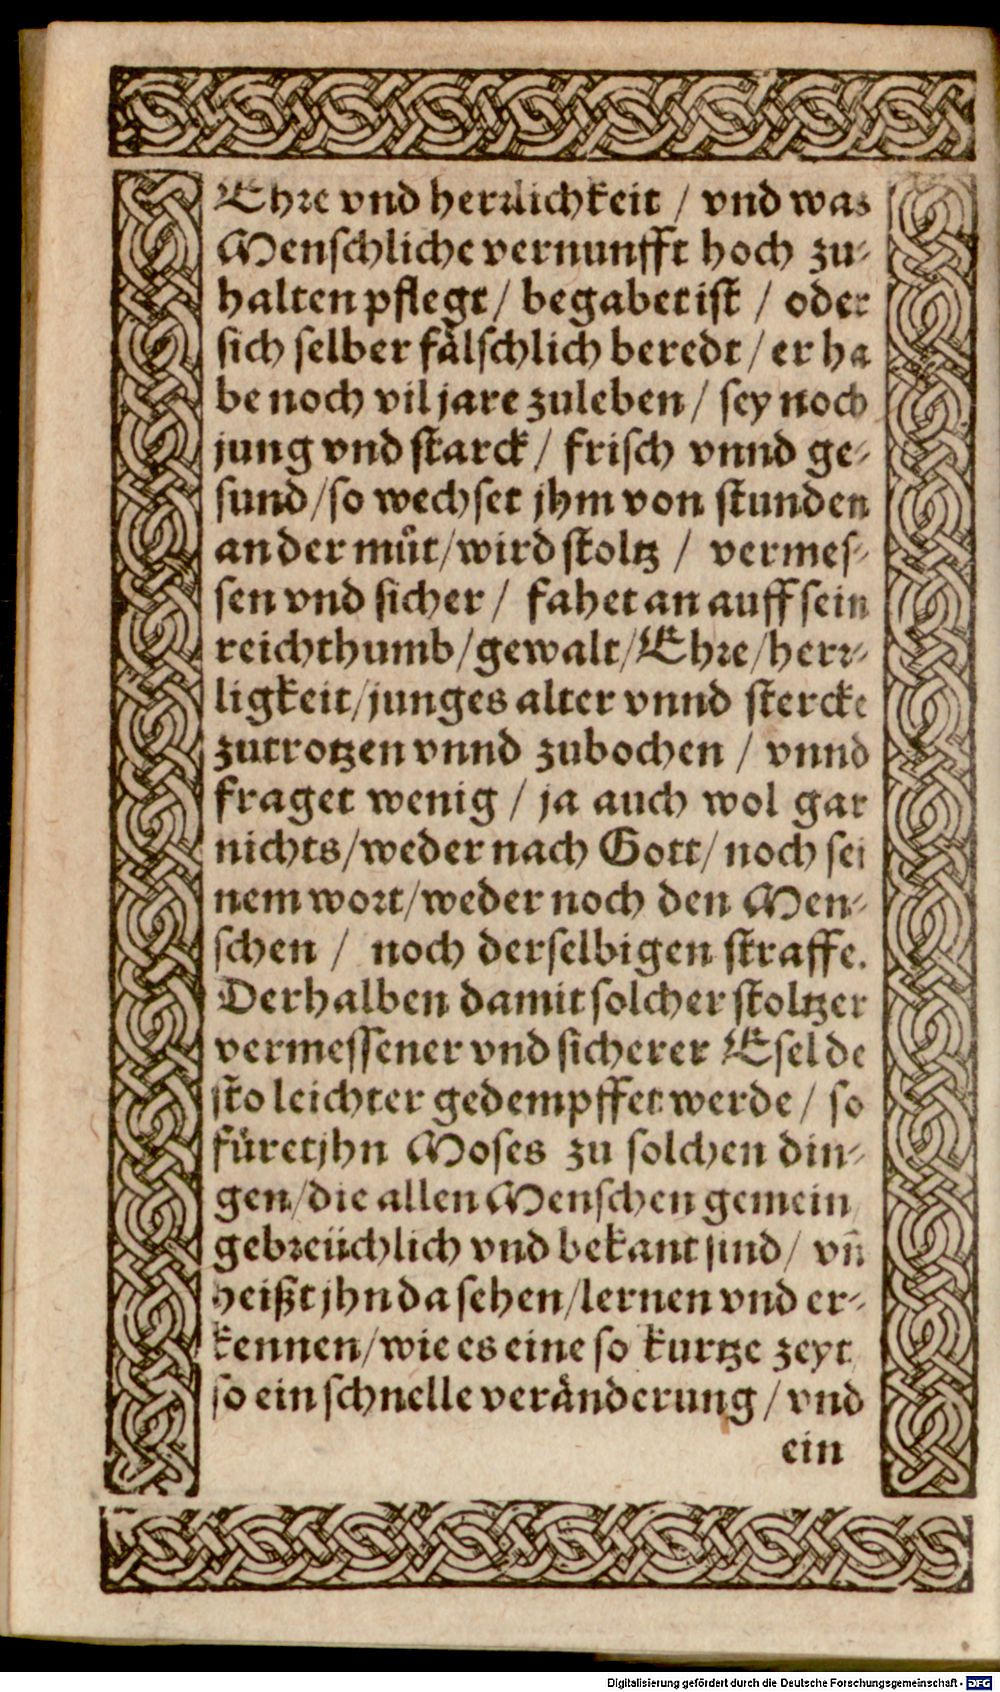 Ehre vnd herrlichkeit / vnd was
Menschliche vernunfft hoch zu-
halten pflegt / begabet ist / oder
sich selber fälschlich beredt / er ha
be noch vil jare zuleben / sey noch
jung vnd starck / frisch vnnd ge-
sund / so wechset jhm von stunden
an der můt / wird stoltz / vermes-
sen vnd sicher / fahet an auff sein
reichthumb / gewalt / Ehre / herr-
ligkeit / junges alter vnnd stercke
zutrotzen vnnd zubochen / vnnd
fraget wenig / ja auch wol gar
nichts / weder nach Gott / noch sei
nem wort / weder noch den Men-
schen / noch derselbigen straffe.
Derhalben damit solcher stoltzer
vermessener vnd sicherer Esel de
sto leichter gedempffet werde / so
füret jhn Moses zu solchen din-
gen / die allen Menschen gemein
gebreüchlich vnd bekant sind / vñ
heißt jhn da sehen / lernen vnd er-
kennen / wie es eine so kurtze zeyt
so ein schnelle veränderung / vnd
ein
Digitalisierung gefördert durch die Deutsche Forschungsgemeinschaft - DFG